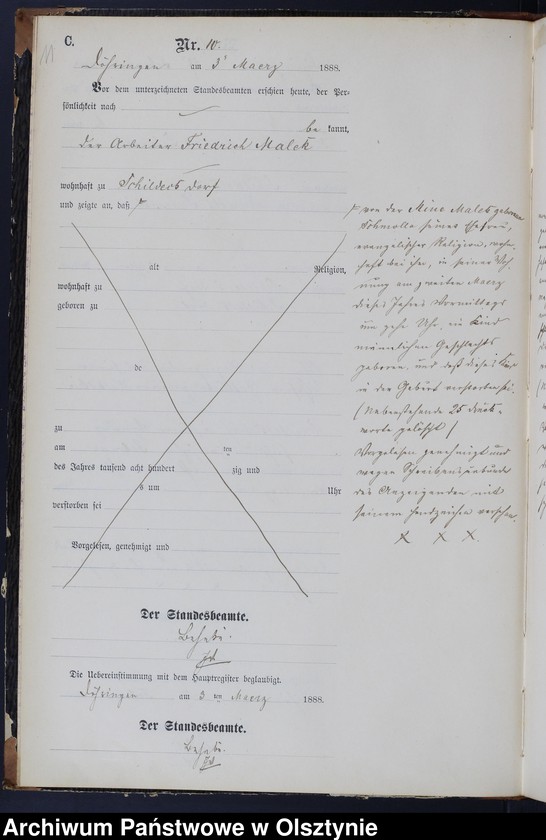 C.
Nr. 10.
11
Döhringen am 3 Maerz 1888.
Vor dem unterzeichneten Standesbeamten erschien heute, der Per=
sönlichkeit nach
be kannt,
der Arbeiter Friedrich Malek
wohnhaft zu Schildeck Dorf
und zeigte an, daß
von der Mine Malek geborene
seiner Ehefrau,
evangelischer Religion, wohn-
haft bei ihm, in seiner Woh-
nung am zweiten Maerz
dieses Jahres Vormittags
um zehn Uhr, ein Kind
männlichen Geschlechts
geboren und daß dieses Kind
in der Geburt verstorben sei.
(Nebenstehende 25 Druck-
worte gelöscht)
Vorgelesen genehmigt und
wegen Schreibensunkunde
des Anzeigenden mit
seinem Handzeichen versehen.
X X X.
alt Religion,
wohnhaft zu
geboren zu
de
zu
am ten
des Jahres tausend acht hundert zig und
s um Uhr
verstorben sei
Vorgelesen, genehmigt und
Der Standesbeamte.
Die Uebereinstimmung mit dem Hauptregister beglaubigt.
Döhringen am 3 ten Maerz 1888.
Der Standesbeamte.
Archiwum Państwowe w Olsztynie